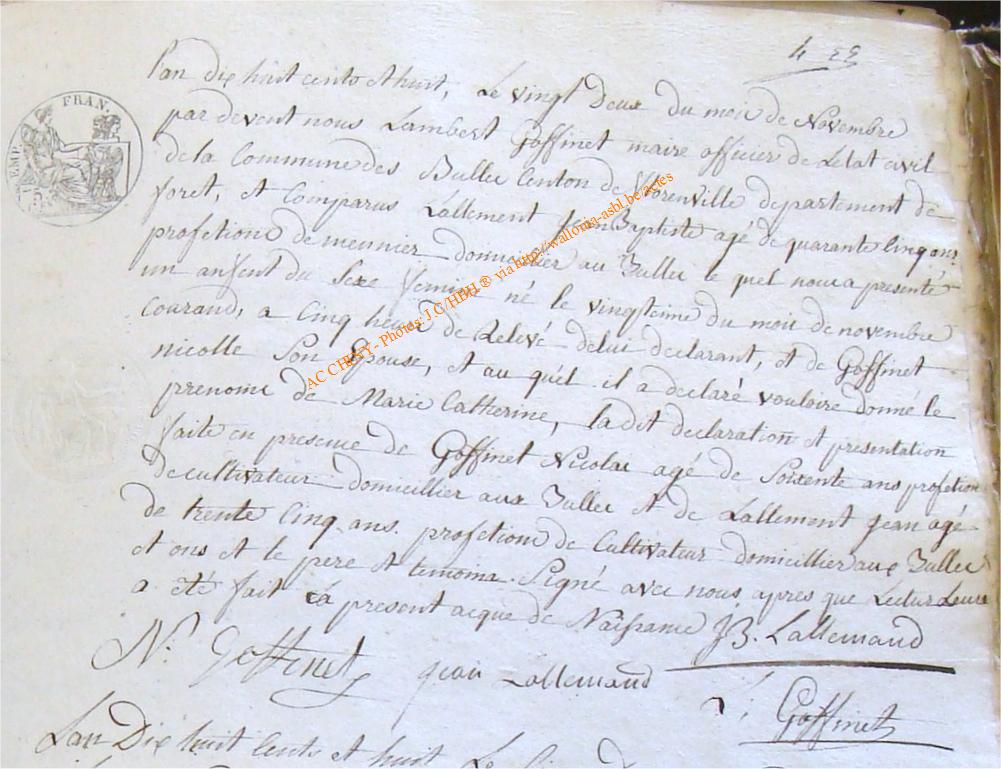 4 25
EMP. FRAN.
l'an dix huit cents et huit, Le vingt deux du moi de Novembre
par devent nous Lambert Goffinet maire officier de Letat civil
de la Commune des Bulles Centon de florenville departement de
foret, et Comparus Lallement Jean Baptiste agé de quarante Cinq ans
profetion de meunier domicillier au Bulles le quel nous a presenté
un anfent du Sexe feminin né le vingtieme du moi de novembre
courand, a Cinq heure de Relevé delui declarant, et de Goffinet
nicolle Son Epouse, et au quel il a declaré vouloire donné le
prenomi de Marie Catherine, la dit declaration et presentation
faite en presence de Goffinet Nicolai agé de Soixente ans profetion
de cultivateur domicillier aux Bulles et de Lallement jean agé
de trente Cinq ans. profetion de Cultivateur domicillier aux Bulles
et ons et le pere et temoins Signé avec nous apres que Lectur Leurs
a eté fait la present acque de Naissance J B. Lallemand
N. Goffinet jean Lallemand
L Goffinet
Lan Dix huit Cents et huit Le
AC CHINY - Photos: J.C/HBH ® via http://wallonia-asbl.be/actes